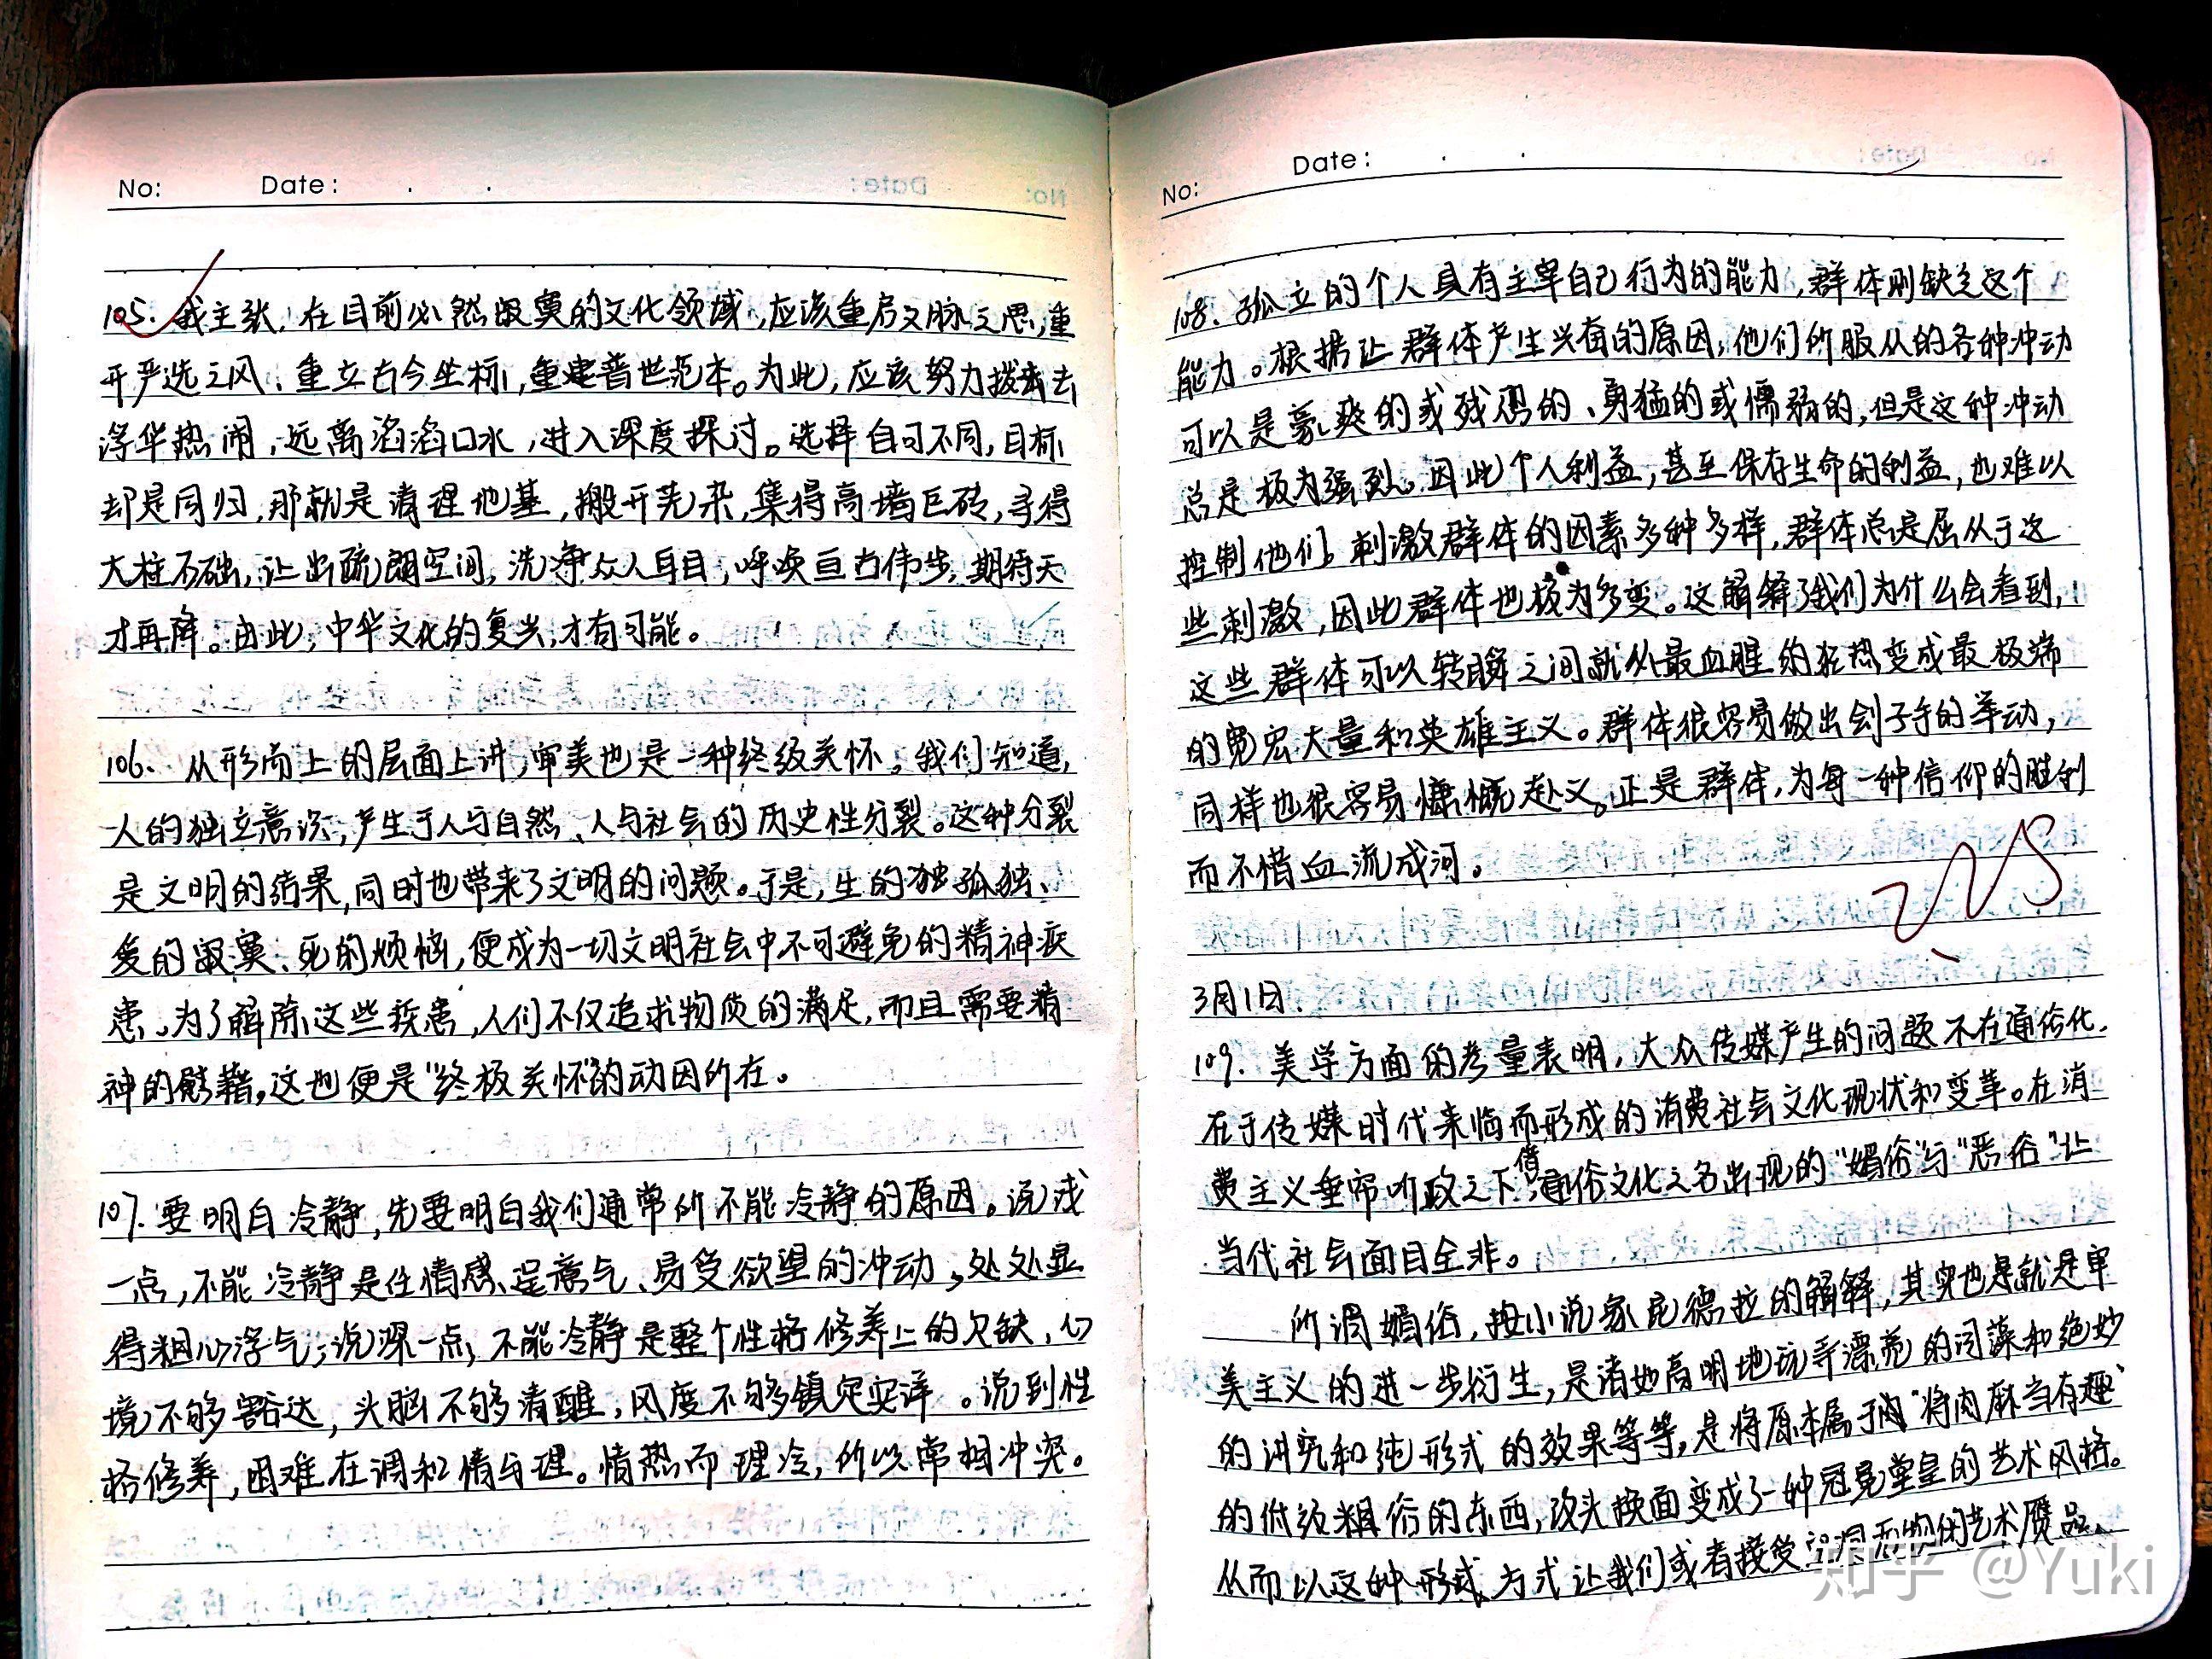 No: Date: . .
105. 我主张, 在目前必然寂寞的文化领域,应该重启文脉之思,重
开严选之风、重立古今坐标,重建普世范本。为此,应该努力拨去
浮华热闹,远离滔滔口水,进入深度探讨。选择自可不同,目标
却是同归,那就是清理地基,搬开芜杂,集得高墙巨砖,寻得
大柱石础,让出疏朗空间,洗净众人耳目,呼唤亘古伟步,期待天
才再降。由此,中华文化的复兴,才有可能。
106、从形而上的层面上讲,审美也是一种终级关怀。我们知道,
人的独立意识,产生于人与自然、人与社会的历史性分裂。这种分裂
是文明的结果,同时也带来了文明的问题。于是,生的独孤独、
爱的寂寞、死的烦恼,便成为一切文明社会中不可避免的精神疾
患。为了解除这些疾患,人们不仅追求物质的满足,而且需要精
神的慰藉,这也便是"终极关怀"的动因所在。
107. 要明白冷静,先要明白我们通常所不能冷静的原因。说浅
一点,不能冷静是任情感、逞意气、易受欲望的冲动,处处显
得粗心浮气;说深一点,不能冷静是整个性格修养上的欠缺,心
境不够豁达,头脑不够清醒,风度不够镇定安详。说到性
格修养,困难在调和情与理。情热而理冷,所以常相冲突。
No: Date: . .
108、孤立的个人具有主宰自己行为的能力,群体则缺乏这个
能力。根据让群体产生兴奋的原因,他们所服从的各种冲动
可以是豪爽的或残忍的、勇猛的或懦弱的,但是这种冲动
总是极为强烈。因此个人利益,甚至保存生命的利益,也难以
控制他们。刺激群体的因素多种多样,群体总是屈从于这
些刺激,因此群体也极为多变。这解释了我们为什么会看到,
这些群体可以转瞬之间就从最血腥的狂热变成最极端
的宽宏大量和英雄主义。群体很容易做出刽子手的举动,
同样也很容易慷慨赴义。正是群体,为每一种信仰的胜利
而不惜血流成河。
3月1日.
109. 美学方面的考量表明,大众传媒产生的问题不在通俗化,
在于传媒时代来临而形成的消费社会文化现状和变革。在消
费主义垂帘听政之下,借通俗文化之名出现的"媚俗"与"恶俗"让
当代社会面目全非。
所谓媚俗,按小说家昆德拉的解释,其实也是就是审
美主义的进一步衍生,是诸如高明地玩弄漂亮的词藻和绝妙
的讲究和纯形式的效果等等,是将原本属于肉"将肉麻当有趣"
的低级粗俗的东西,改头换面变成了一种冠冕堂皇的艺术风格。
从而以这种形式、方式让我们或者接受空洞无物的艺术赝品、
知乎 @Yuki